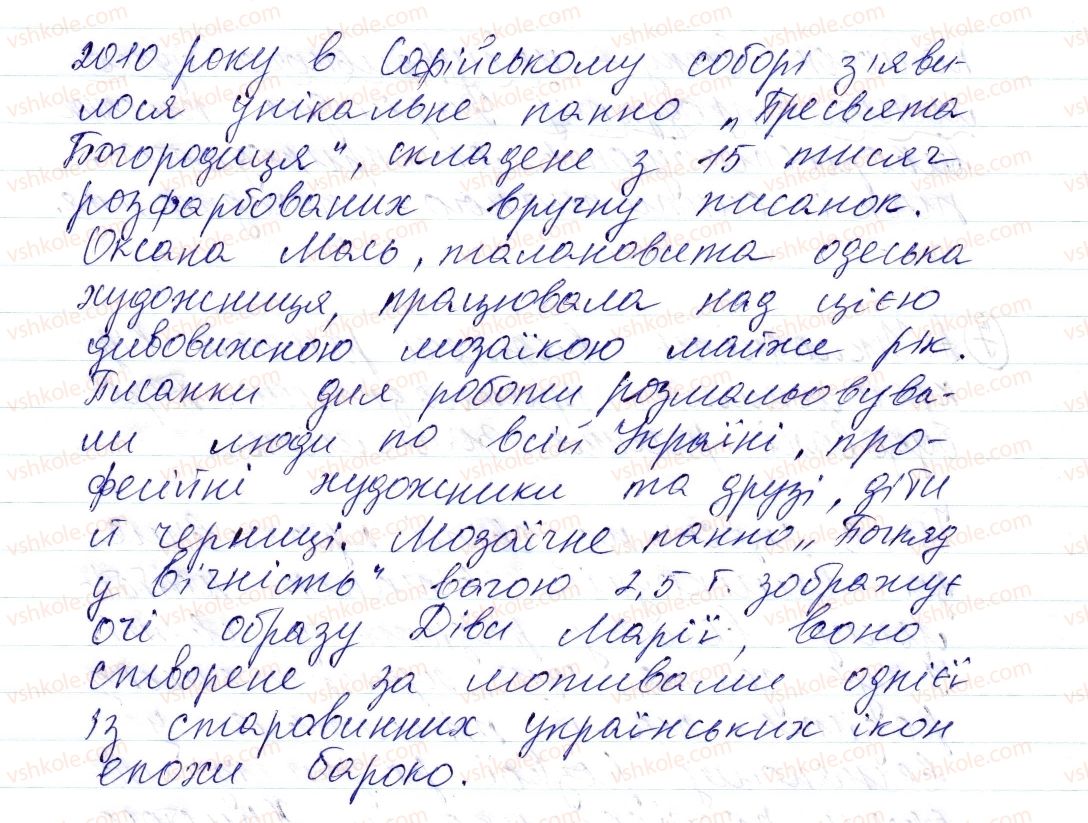 2010 року в Софійському соборі з'яви-
лося унікальне панно „Пресвята
Богородиця", складене з 15 тисяч
розфарбованих вручну писанок.
Оксана Мась, талановита одеська
художниця, працювала над цією
дивовижною мозаїкою майже рік.
Писанки для роботи розмальовува-
ли люди по всій Україні, про-
фесійні художники та друзі, діти
й черниці. Мозаїчне панно „Погляд
у вічність" вагою 2,5 т. зображує
очі образу Діви Марії, воно
створене за мотивами однієї
із старовинних українських ікон
епохи бароко.